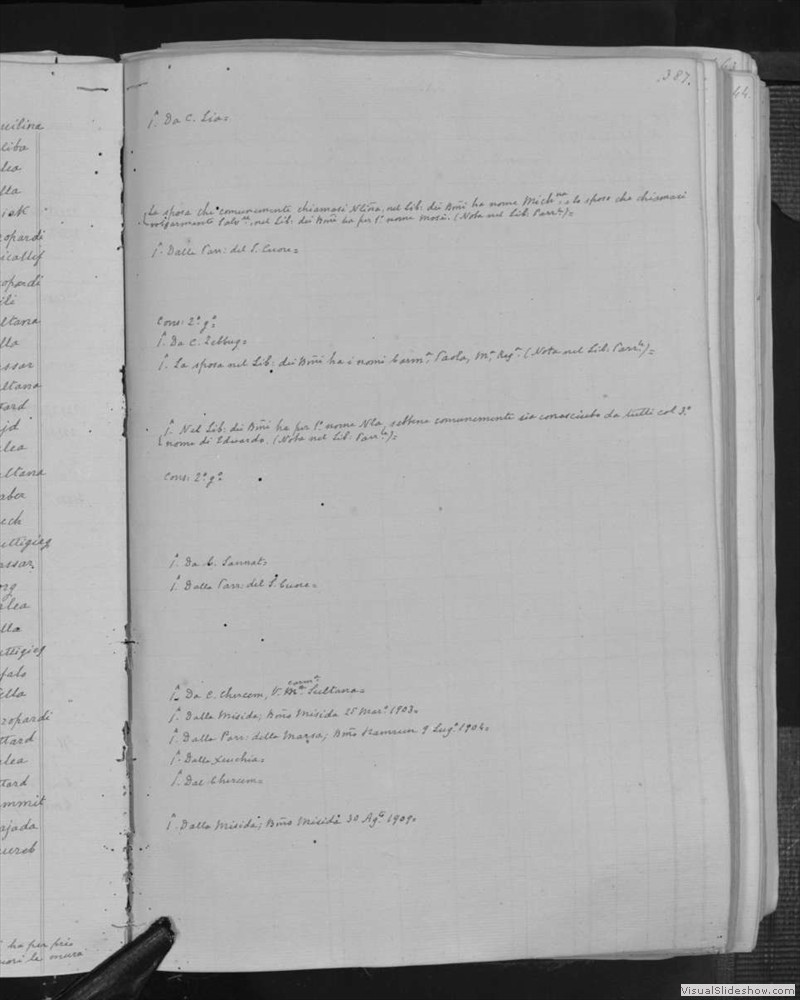 387.
63
44.
uilina
liba
lea
lla
iek
opardi
icallef
opardi
ili
ltana
lla
ssar
ultana
tard
jd
lea
ultana
aber
ech
uttigieg
assar
org
alea
lla
uttigieg
falo
ella
opardi
ttard
lea
ttard
mmit
ajada
aureb
ha per prio
fuori le mura
Iª. Da C. Lia=
La sposa che comunemente chiamasi Ntina, nel Lib: dei Bmi ha nome Michna, e lo sposo che chiamasi
volgarmente Salvre, nel Lib. dei Bmi ha per 1º nome Mosè. (Nota nel Lib. Parrle)=
Iª. Dalla Parr: del S. Cuore=
Cons: 2º gº=
Iª. Da C. Zebbug=
Iª. La sposa nel Lib: dei Bmi ha i nomi Carmª. Paola, Mª. Regª. (Nota nel Lib. Parrle)=
Iª. Nel Lib: dei Bmi ha per 1º nome Nla, sebbene comunemente sia conosciuto da tutti col 3º
nome di Eduardo. (Nota nel Lib. Parrle)=
Cons: 2º gº
Iª. Da C. Sannat=
Iª. Dalla Parr: del S. Cuore=
Iª. Da C. Chercem, V. Mª Carmª Sultana=
Iª. Dalla Misida; Bmo Misida 25 Marº 1903=
Iª. Dalla Parr: della Marsa; Bmo Hamrun 9 Lugº 1904=
Iª. Dalla Xeuchia=
Iª. Dal Chercem=
Iª. Dalla Misida; Bmo Misida 30 Agº 1909=
VisualSlideshow.com